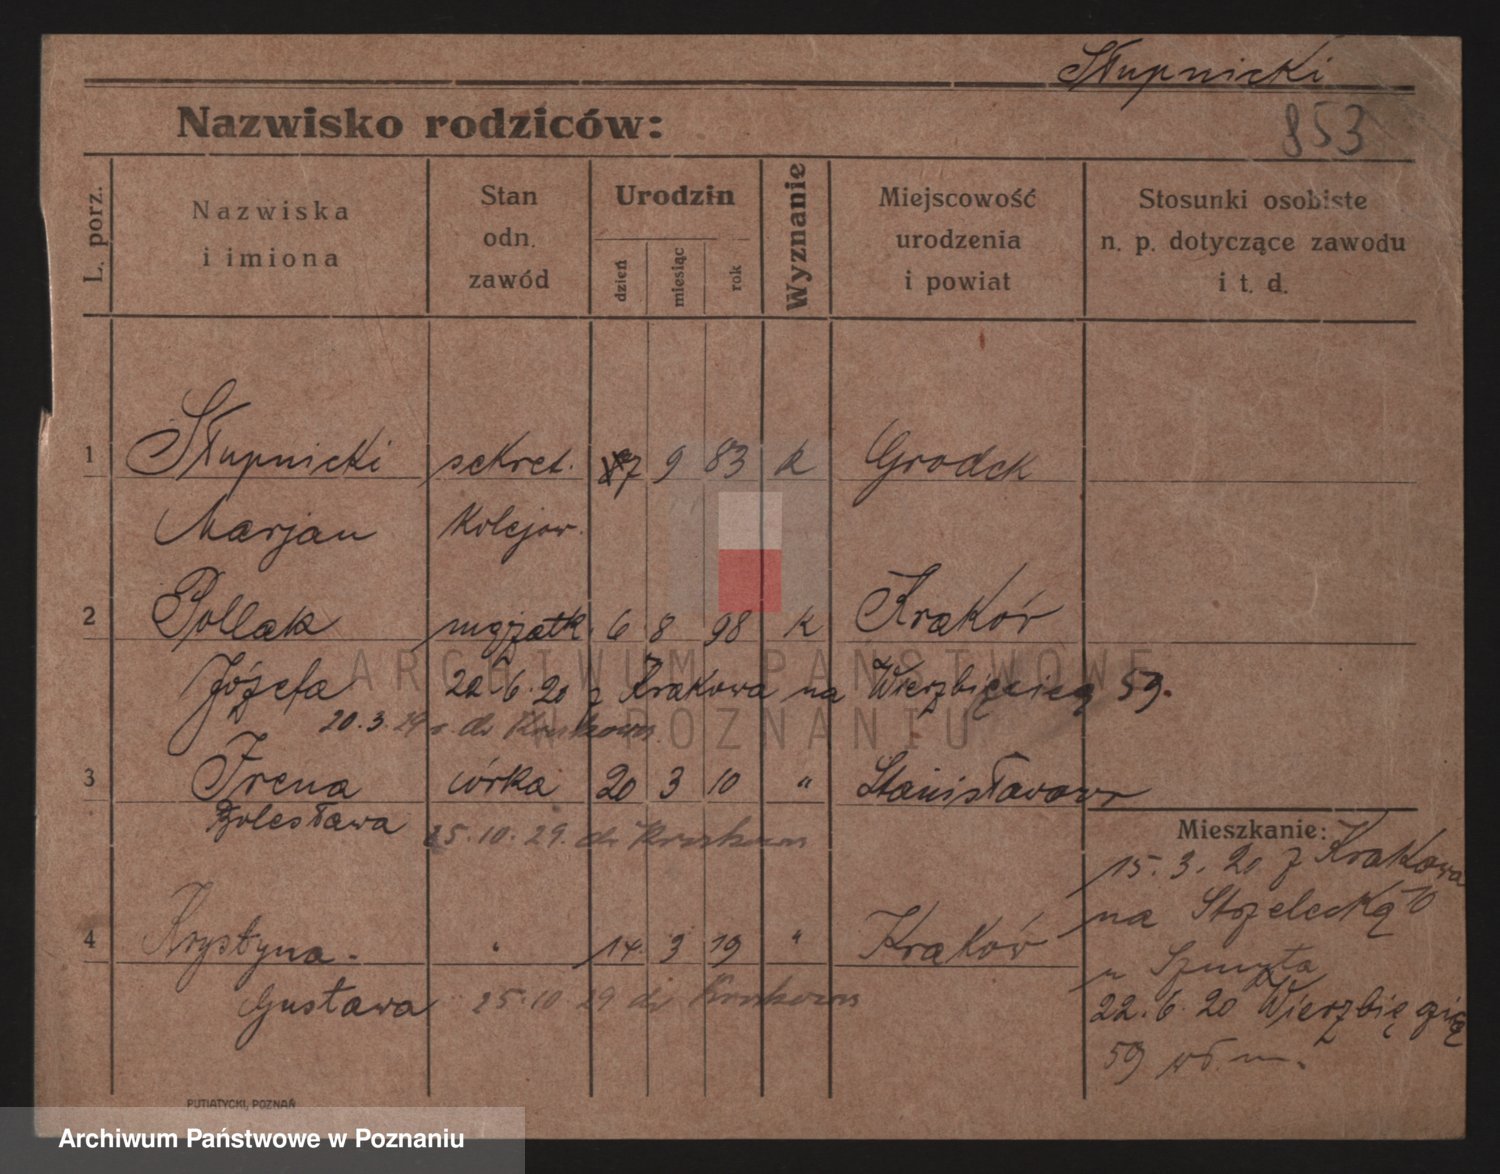 Słupnicki
853
Nazwisko rodziców:
L. porz.
Nazwiska
i imiona
Stan
odn.
zawód
Urodzin
dzień
miesiąc
rok
Wyznanie
Miejscowość
urodzenia
i powiat
Stosunki osobiste
n. p. dotyczące zawodu
i t. d.
1 Słupnicki sekret. 7 9 83 k Grodek
Marjan kolejow.
2 Pollak mężatk. 6 8 98 k Kraków
Józefa 22.6.20 z Krakowa na Wierzbięcieą 59.
20.3.29 do Krakowa
3 Irena córka 20 3 10 " Stanisławow
Bolesława 25.10.29. do Krakowa
4 Krystyna " 14 3 19 " Kraków
Gustawa 25.10 29 do Krakowa
Mieszkanie:
15.3.20 z Krakowa
na Strzelecką 10
u Szmyta
22.6.20 Wierzbięcię
59 wł. m.
ARCHIWUM PAŃSTWOWE
W POZNANIU
PUTIATYCKI, POZNAŃ
Archiwum Państwowe w Poznaniu